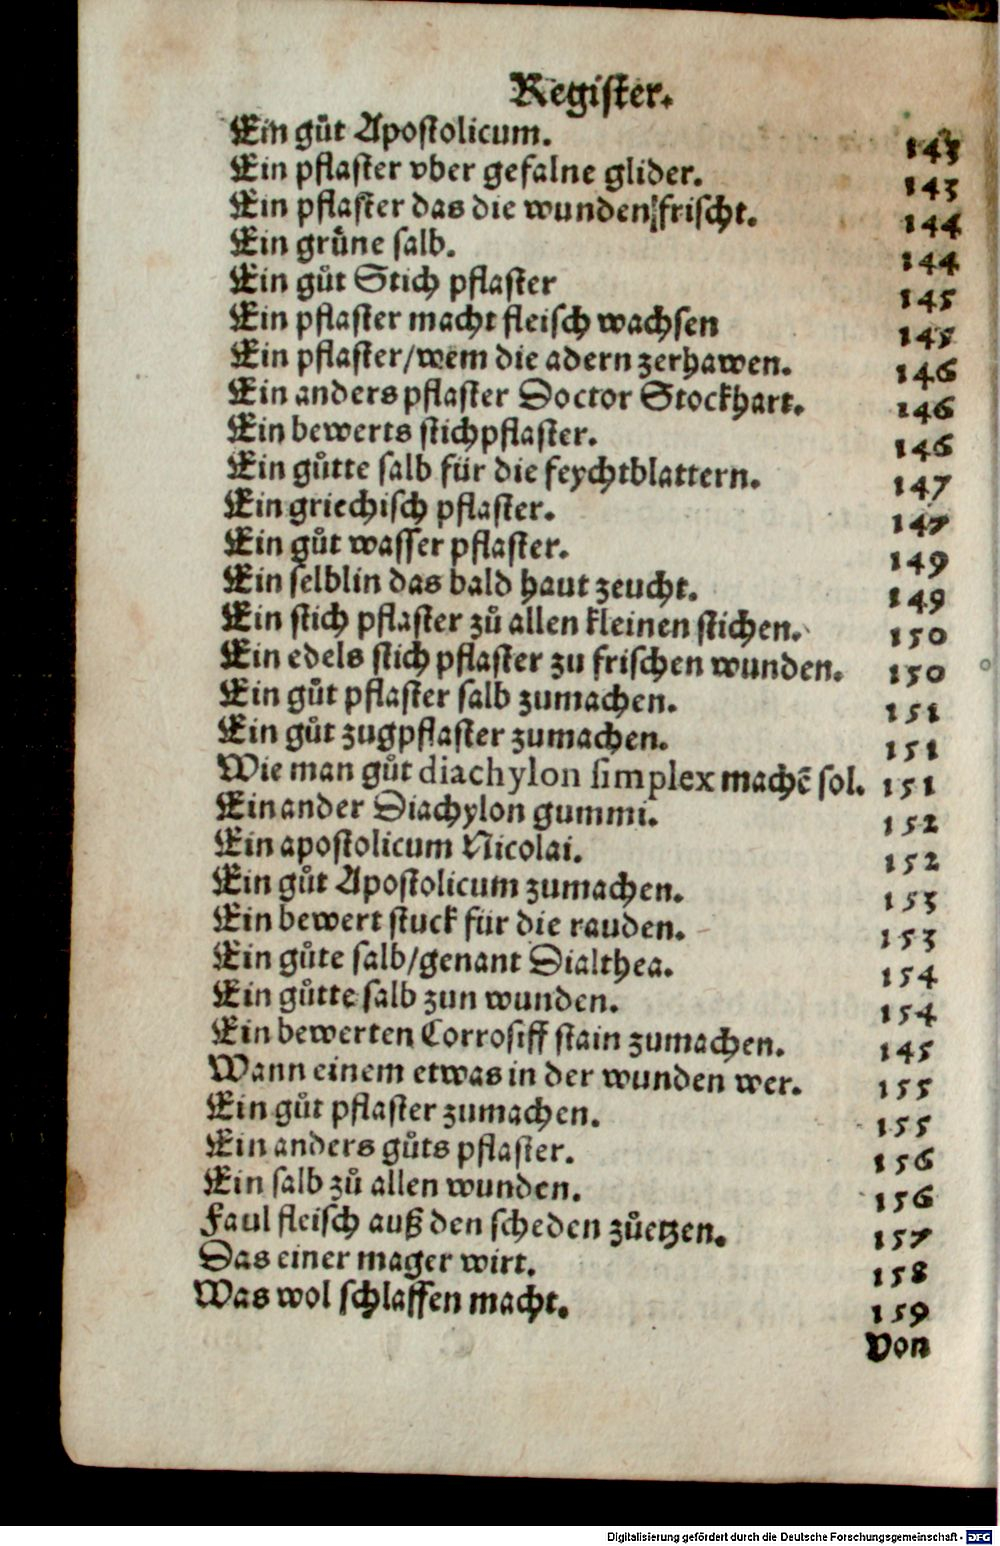 Register.
Ein gůt Apostolicum. 143
Ein pflaster vber gefalne glider. 143
Ein pflaster das die wunden frischt. 144
Ein grůne salb. 144
Ein gůt Stich pflaster 145
Ein pflaster macht fleisch wachsen 145
Ein pflaster/wem die adern zerhawen. 146
Ein anders pflaster Doctor Stockhart. 146
Ein bewerts stichpflaster. 146
Ein gůtte salb für die feychtblattern. 147
Ein griechisch pflaster. 147
Ein gůt wasser pflaster. 149
Ein selblin das bald haut zeucht. 149
Ein stich pflaster zů allen kleinen stichen. 150
Ein edels stich pflaster zu frischen wunden. 150
Ein gůt pflaster salb zumachen. 151
Ein gůt zugpflaster zumachen. 151
Wie man gůt diachylon simplex machē sol. 151
Ein ander Diachylon gummi. 152
Ein apostolicum Nicolai. 152
Ein gůt Apostolicum zumachen. 153
Ein bewert stuck für die rauden. 153
Ein gůte salb/genant Dialthea. 154
Ein gůtte salb zun wunden. 154
Ein bewerten Corrosiff stain zumachen. 145
Wann einem etwas in der wunden wer. 155
Ein gůt pflaster zumachen. 155
Ein anders gůts pflaster. 156
Ein salb zů allen wunden. 156
Faul fleisch auß den scheden zůetzen. 157
Das einer mager wirt. 158
Was wol schlaffen macht. 159
Von
Digitalisierung gefördert durch die Deutsche Forschungsgemeinschaft - DFG